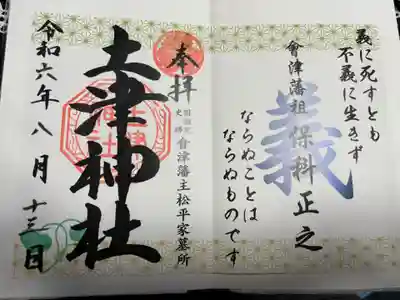 義に死すとも
不義に生きず
會津藩祖 保科正之
義
ならぬことは
ならぬものです
奉拝
國指定
史跡
會津藩主松平家墓所
土津神社
令和六年八月十三日